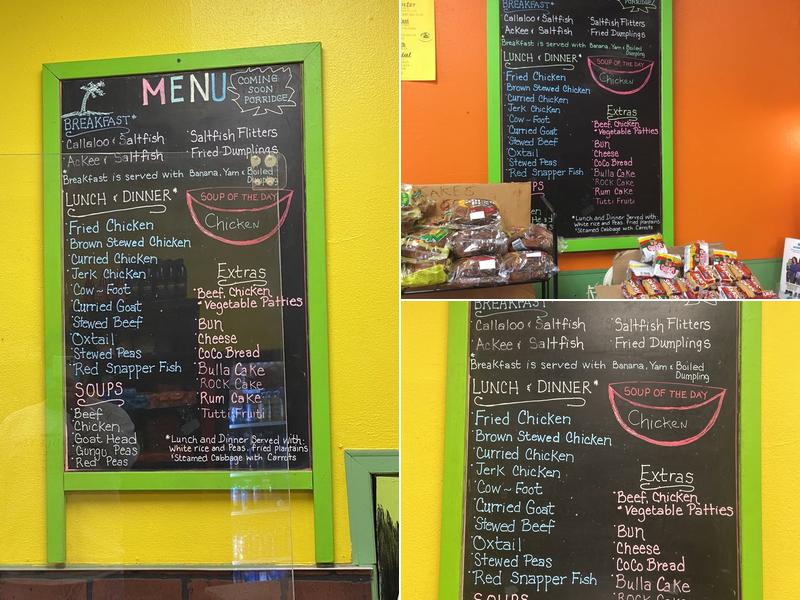 MENU
COMING
SOON
PORRIDGE
BREAKFAST*
Callaloo & Saltfish
Saltfish Flitters
Ackee & Saltfish
Fried Dumplings
*Breakfast is served with Banana, Yam & Boiled
Dumpling
LUNCH & DINNER*
SOUP OF THE DAY
Chicken
Fried Chicken
Brown Stewed Chicken
Curried Chicken
Jerk Chicken
Cow-Foot
Curried Goat
Stewed Beef
Oxtail
Stewed Peas
Red Snapper Fish
Extras
*Beef, Chicken
*Vegetable Patties
Bun
Cheese
CoCo Bread
Bulla Cake
Rock Cake
Rum Cake
Tutti Fruiti
SOUPS
Beef
Chicken
Goat Head
Gungu Peas
Red Peas
*Lunch and Dinner Served with:
White rice and Peas, fried plantains
*Steamed Cabbage with Carrots
BREAKFAST*
PORRIDGE
Callaloo & Saltfish
Saltfish Flitters
Ackee & Saltfish
Fried Dumplings
Breakfast is served with Banana, Yam & Boiled
Dumpling
LUNCH & DINNER*
SOUP OF THE DAY
Chicken
Fried Chicken
Brown Stewed Chicken
Curried Chicken
Jerk Chicken
Cow-Foot
Curried Goat
Stewed Beef
Oxtail
Stewed Peas
Red Snapper Fish
Extras
*Beef, Chicken
*Vegetable Patties
Bun
Cheese
CoCo Bread
Bulla Cake
ROCK Cake
RUM Cake
Tutti Fruiti
*Lunch and Dinner Served with:
White rice and Peas, fried plantains
*Steamed Cabbage with Carrots
BREAKFAST
Callaloo & Saltfish
Saltfish Flitters
Ackee & Saltfish
Fried Dumplings
*Breakfast is served with Banana, Yam & Boiled
Dumpling
LUNCH & DINNER*
SOUP OF THE DAY
Chicken
Fried Chicken
Brown Stewed Chicken
Curried Chicken
Jerk Chicken
Cow-Foot
Curried Goat
Stewed Beef
Oxtail
Stewed Peas
Red Snapper Fish
SOUPS
Extras
*Beef, Chicken
*Vegetable Patties
Bun
Cheese
CoCo Bread
Bulla Cake
Rock Cake